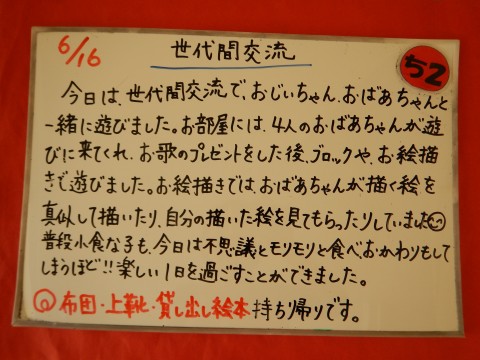 6/16 世代間交流 ち2
今日は、世代間交流で、おじいちゃん、おばあちゃんと
一緒に遊びました。お部屋には、4人のおばあちゃんが遊
びに来てくれ、お歌のプレゼントをした後、ブロックや、お絵描
きで遊びました。お絵描きでは、おばあちゃんが描く絵を
真似して描いたり、自分の描いた絵を見てもらったりしていました
普段小食な子も、今日は不思議とモリモリと食べ、おかわりもして
しまうほど!!楽しい1日を過ごすことができました。
布団・上靴・貸し出し絵本持ち帰りです。